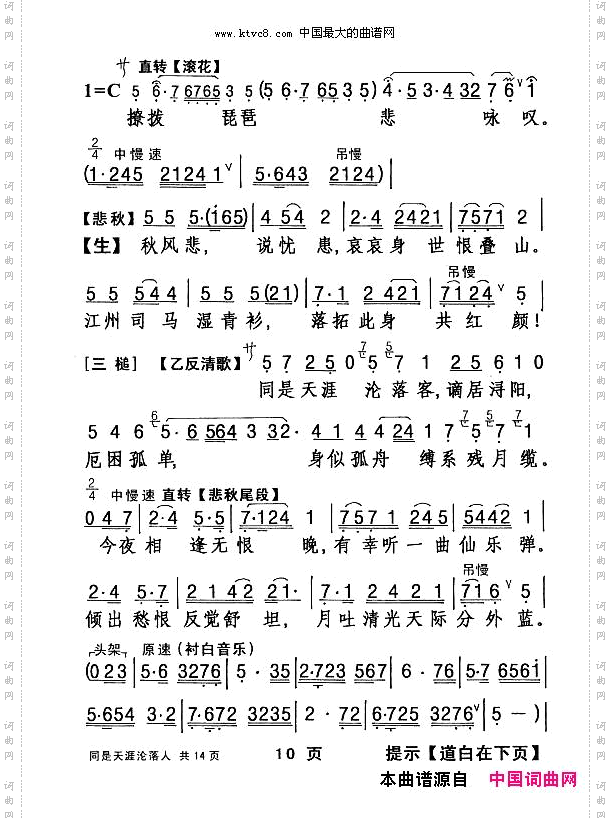 www.ktvc8.com 中国最大的曲谱网
廿 直转【滚花】
1=C 5 6·7 6765 3 5 (5 6·7 65 3 5) 4·5 3·4 32 7 6 1
撩拨 琵琶 悲 咏叹。
2/4 中慢速 吊慢
(1·245 2124 1 | 5·643 2124) |
【悲秋】 5 5 5·(165) | 4 54 2 | 2·4 2421 | 7571 2 |
【生】 秋风悲, 说忧 患,哀哀身 世恨叠山。
吊慢
5 5 544 | 5 5 5 (21) | 7·1 2421 | 7124 5 |
江州司马湿青衫, 落拓此身 共红 颜!
[三槌] 【乙反清歌】 廿 5 7 2 5 0 5 7 1 2 5 6 1 0
同是天涯 沦落客,谪居浔阳,
5 4 6 5· 6 564 3 32· 4 1 4 24 1 7 5 7 1
厄困孤单, 身似孤舟 缚系残月缆。
2/4 中慢速 直转【悲秋尾段】
0 4 7 | 2·4 5·5 | 7·124 1 | 7571 2 1 | 245 | 5442 1 |
今夜相 逢无恨 晚,有幸听一曲仙乐弹。
吊慢
2·4 5·7 | 2142 21 | 7·1 2421 | 716 5 |
倾出愁恨反觉舒 坦, 月吐清光天际分外蓝。
头架 原速(衬白音乐)
(0 2 3 | 5·6 3276 | 5 35 | 2·723 567 | 6·76 | 5·67 6561 |
5·654 3·2 | 7·672 3235 | 2·72 | 6·725 3276 | 5 —) |
同是天涯沦落人 共14页
10 页
提示【道白在下页】
本曲谱源自 中国词曲网
词曲网